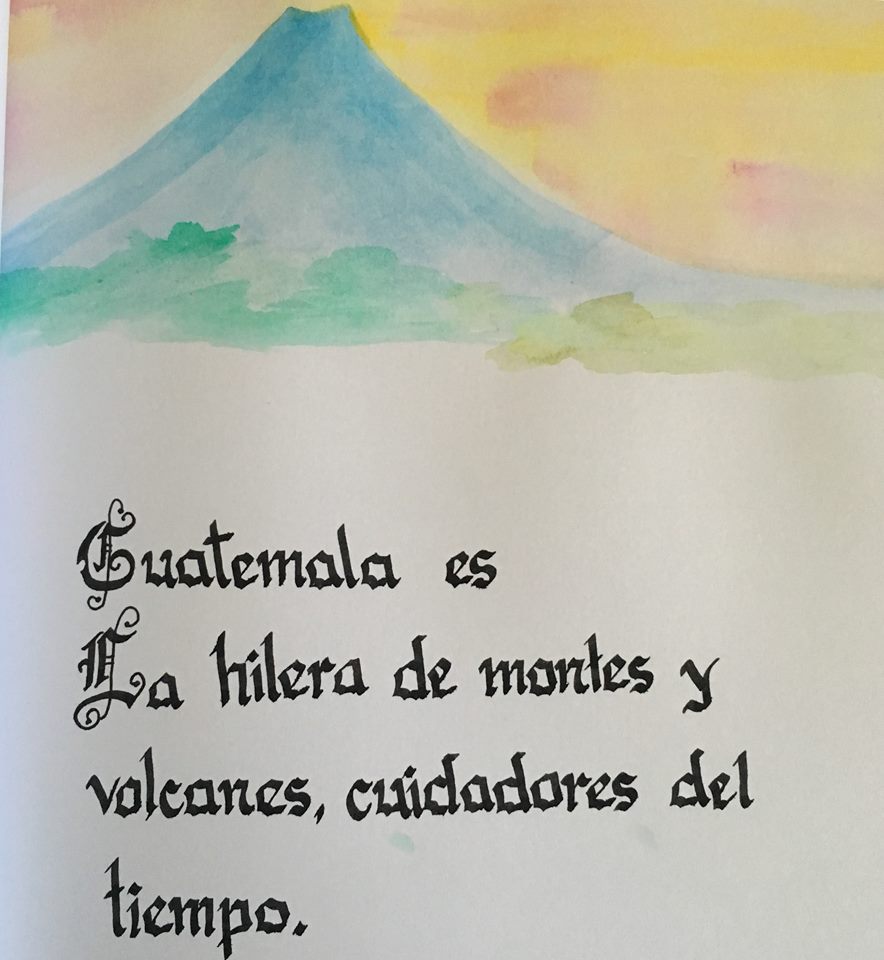 Guatemala es
La hilera de montes y
volcanes, cuidadores del
tiempo.